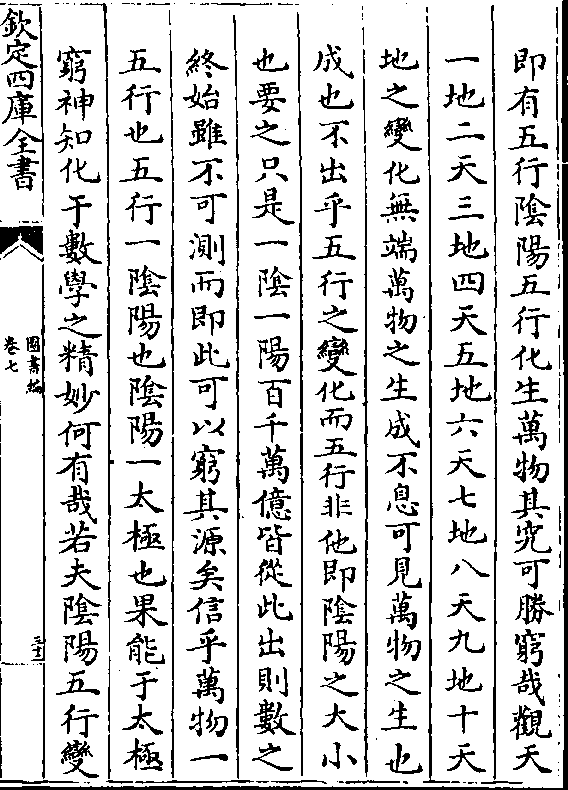 即有五行陰陽五行化生萬物其究可勝窮哉觀天
一地二天三地四天五地六天七地八天九地十天
地之變化無端萬物之生成不息可見萬物之生也
成也不出乎五行之變化而五行非他即陰陽之大小
也要之只是一陰一陽百千萬億皆從此出則數之
終始雖不可測而即此可以窮其源矣信乎萬物一
五行也五行一陰陽也陰陽一太極也果能于太極
窮神知化于數學之精妙何有哉若夫陰陽五行變
欽定四庫全書
圖書編
卷七